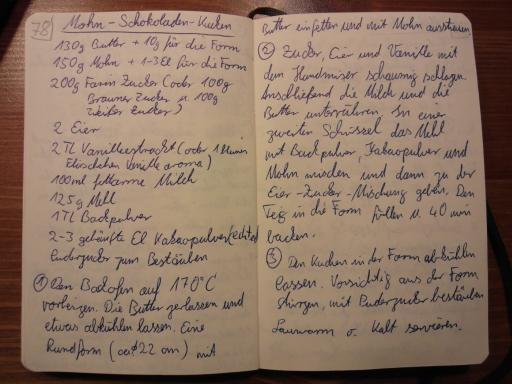 78
Mohn-Schokoladen-Kuchen
130g Butter + 10g für die Form
150g Mohn + 1-3 El für die Form
200g Farin Zucker (oder 100g
Brauner Zucker u. 100g
Weißer Zucker)
2 Eier
2 TL Vanilleextract (oder 1
Fläschchen Vanille aroma)
100ml fettarme Milch
125g Mehl
1TL Backpulver
2-3 gehäufte El Kakaopulver (echter)
Puderzucker zum Bestäuben
① Den Backofen auf 170°C
vorheizen. Die Butter zerlassen und
etwas abkühlen lassen. Eine
Rundform (ca ø22 cm) mit
Butter einfetten und mit Mohn ausstreuen
② Zucker, Eier und Vanille mit
dem Handmixer schaumig schlagen.
Anschließend die Milch und die
Butter unterrühren. In einer
zweiten Schüssel das Mehl
mit Backpulver, Kakaopulver und
Mohn mischen und dann zu der
Eier-Zucker-Mischung geben. Den
Teig in die Form füllen u. 40 min
backen.
③ Den Kuchen in der Form abkühlen
lassen. Vorsichtig aus der Form
stürzen, mit Puderzucker bestäuben
Lauwarm o. kalt servieren.